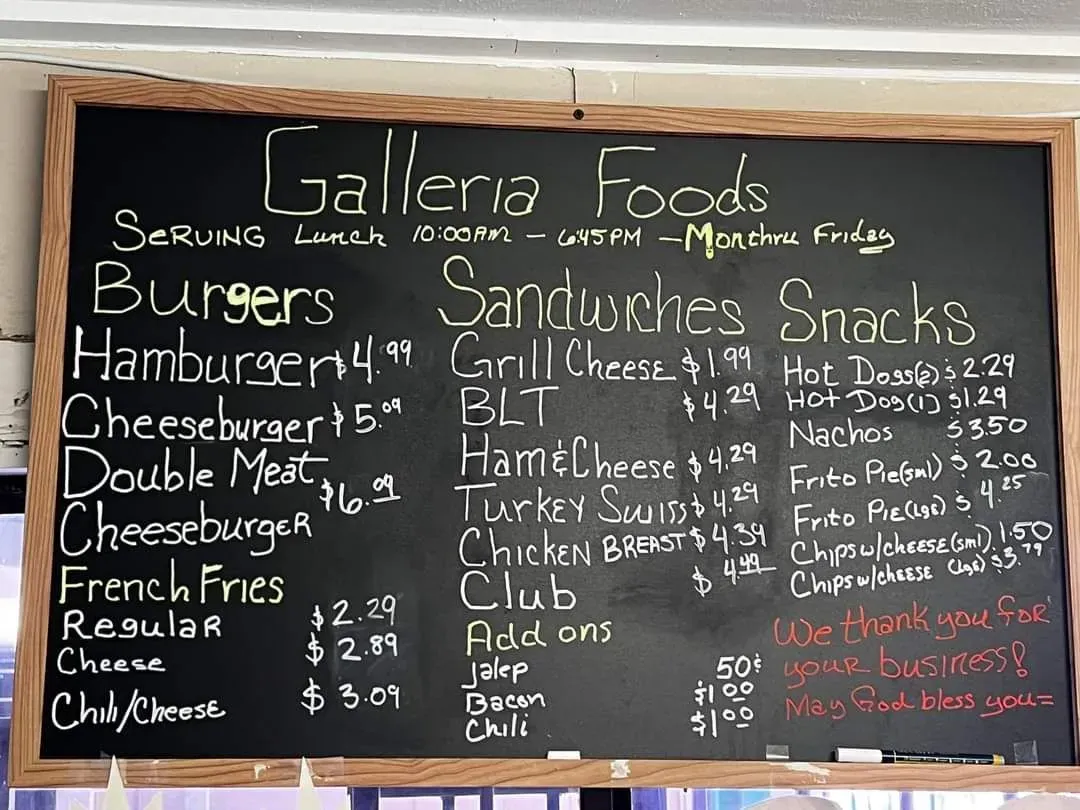 Galleria Foods
SERVING Lunch 10:00AM – 6:45PM – Monthru Friday
Burgers
Hamburger $4.99
Cheeseburger $5.09
Double Meat
Cheeseburger $6.09
French Fries
Regular $2.29
Cheese $2.89
Chili/Cheese $3.09
Sandwiches
Grill Cheese $1.99
BLT $4.29
Ham & Cheese $4.29
Turkey Swiss $4.29
Chicken BREAST $4.39
Club $4.49
Add ons
Jalep 50¢
Bacon $1.00
Chili $1.00
Snacks
Hot Dogs(2) $2.29
Hot Dog(1) $1.29
Nachos $3.50
Frito Pie(sml) $2.00
Frito Pie(lge) $4.25
Chips w/cheese(sml) 1.50
Chips w/cheese (lge) $3.79
We thank you for
your business!
May God bless you=